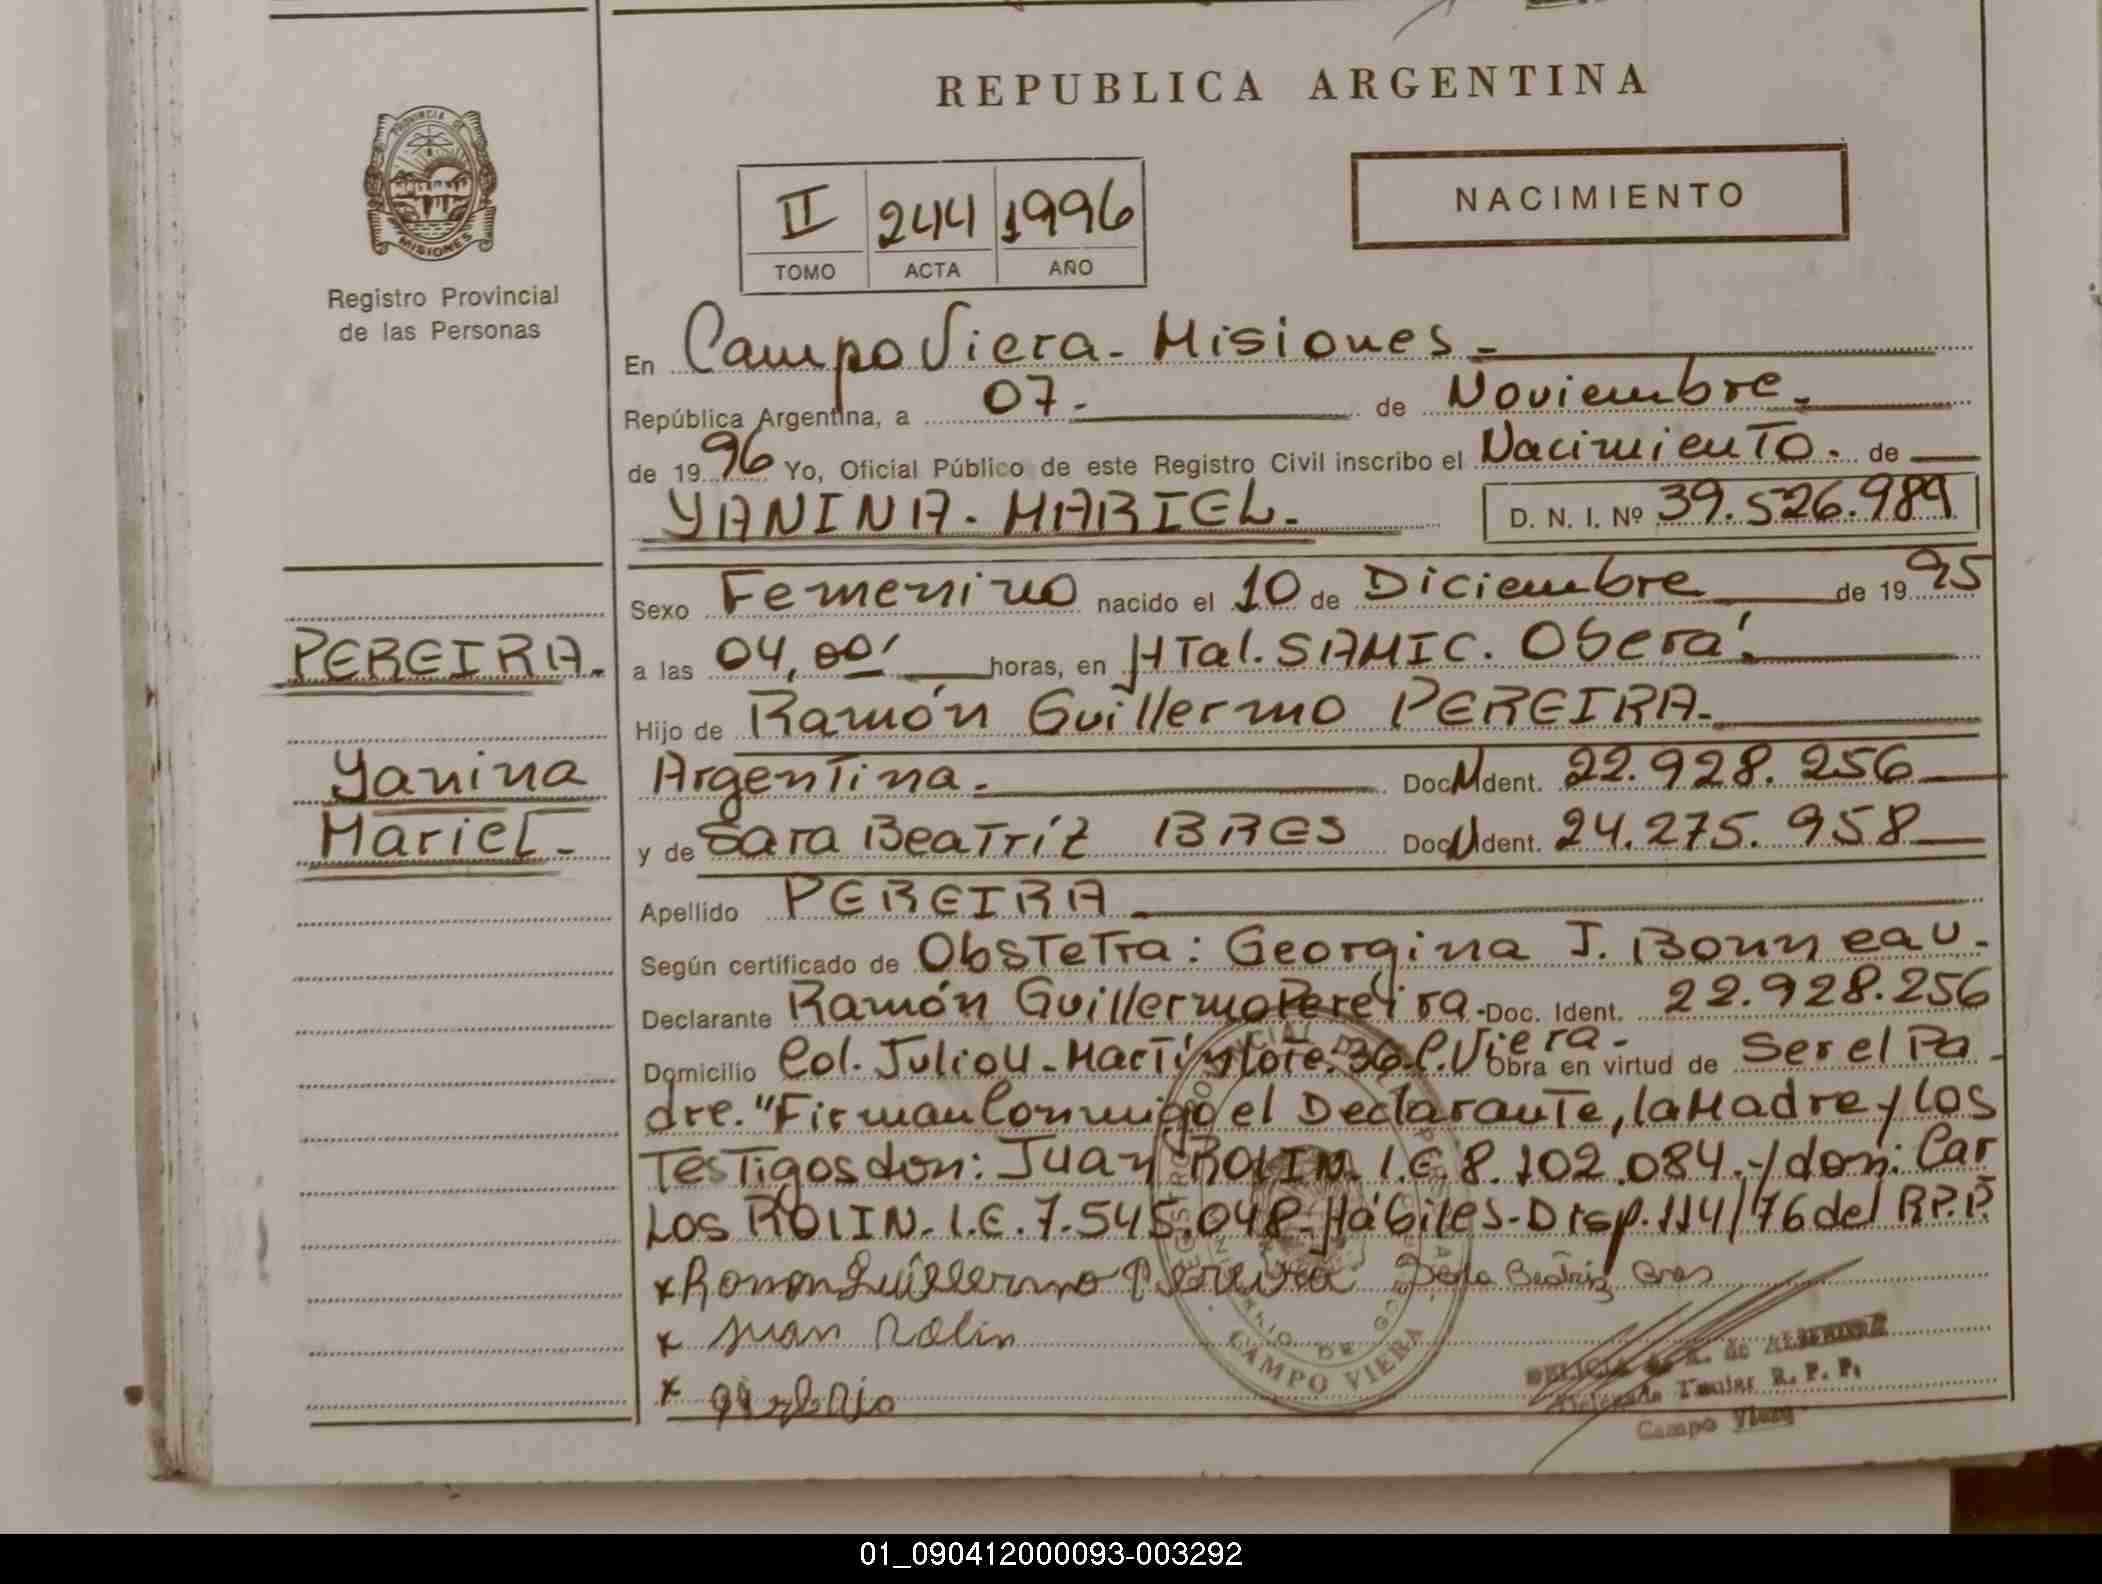 REPUBLICA ARGENTINA
PROVINCIA DE
MISIONES
Registro Provincial
de las Personas
NACIMIENTO
II 244 1996
TOMO ACTA AÑO
En Campo Viera - Misiones -
República Argentina, a 07 - de Noviembre -
de 1996 Yo, Oficial Público de este Registro Civil inscribo el Nacimiento . de
YANINA . MARIEL - D. N. I. Nº 39.526.989
Sexo Femenino nacido el 10 de Diciembre de 1995
PEREIRA -
a las 04,00' horas, en HTal. SAMIC. Oberá.
Hijo de Ramón Guillermo PEREIRA -
Yanina
Mariel -
Argentina - Doc N Ident. 22.928.256
y de Sara Beatríz BRES Doc N Ident. 24.275.958
Apellido PEREIRA
Según certificado de Obstetra: Georgina J. Bonneau -
Declarante Ramón Guillermo Pereira - Doc. Ident. 22.928.256
Domicilio Col. Julio U. Martín Lote. 36 C. Viera - Obra en virtud de Ser el Pa-
dre. "Firman Conmigo el Declarante, la Madre y Los
Testigos don: Juan ROLIN - I.E. 8.102.084 - y don: Car
Los ROLIN - I.E. 7.545.048 - Hábiles - Disp. 114/76 del R.P.P.
x Ramon Guillermo Pereira Sara Beatriz Bres
x Juan Rolin
x
CAMPO VIERA
DELICIA de
Delegada Titular R. P. P.
Campo Viera
01_090412000093-003292